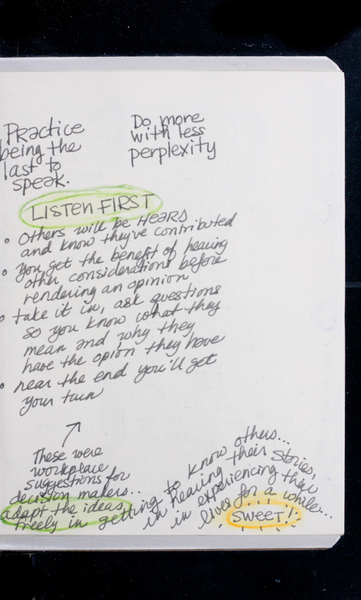 Practice
being the
last to
speak.
Do more
with less
perplexity
LISTEN FIRST
• Others will be HEARS
and know they've contributed
• You get the benefit of hearing
other considerations before
rendering an opinion
• take it in, ask questions
so you know what they
mean and why they
have the opion they have
• near the end you'll get
your turn
These were
workplace
suggestions for
decision makers...
adapt the ideas,
freely in getting to know others...
in hearing their stories,
in experiencing their
lives for a while...
SWEET!